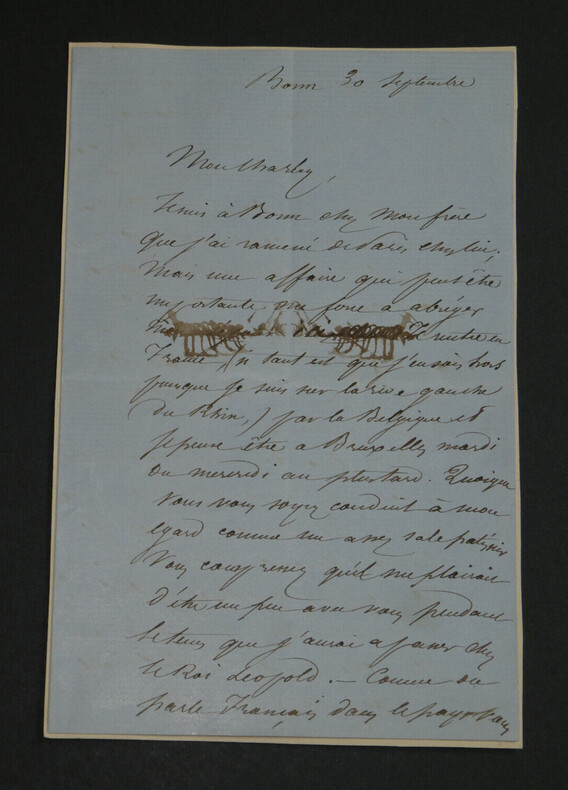 Bonn 30 Septembre
Mon Charley,
Je suis à Bonn chez mon frère
que j'ai ramené de Paris chez lui;
Mais une affaire qui peut être
importante me force à abréger
Je rentre en
France, (si tant est que j'en sois hors
puisque je suis sur la rive gauche
du Rhin,) par la Belgique et
je pense être à Bruxelles mardi
ou mercredi au plus tard. Quoique
vous vous soyez conduit à mon
égard comme un assez sale
Vous comprenez qu'il me plairait
d'être un peu avec vous pendant
le tems que j'aurai à passer chez
le Roi Leopold. — Comme on
parle Français dans le pays